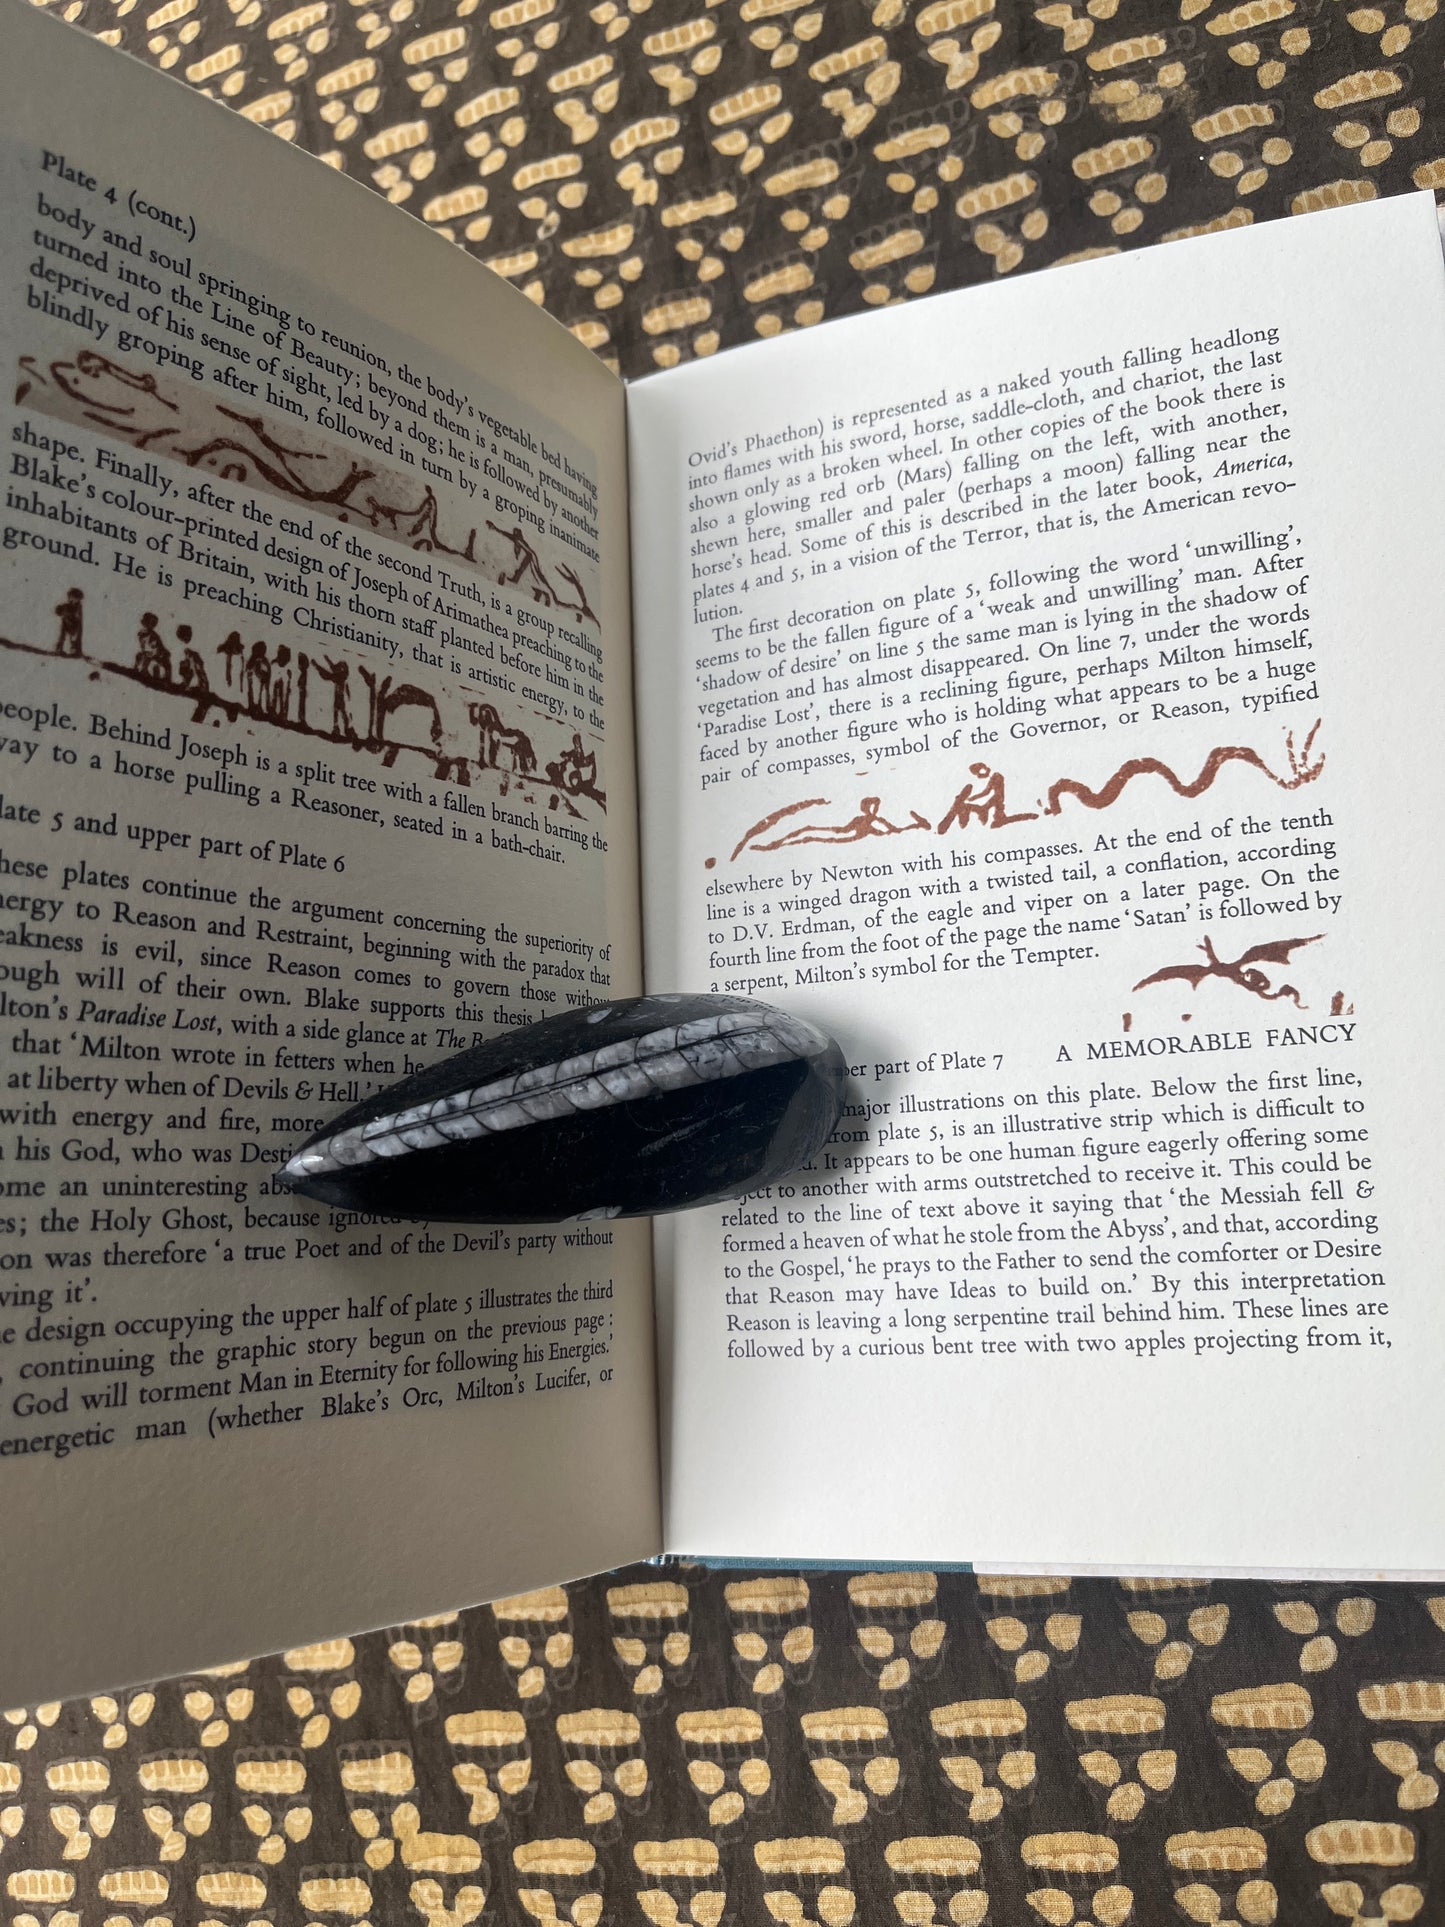 Plate 4 (cont.)
body and soul springing to reunion, the body's vegetable bed having
turned into the Line of Beauty; beyond them is a man, presumably
deprived of his sense of sight, led by a dog; he is followed by another
blindly groping after him, followed in turn by a groping inanimate
shape. Finally, after the end of the second Truth, is a group recalling
Blake's colour-printed design of Joseph of Arimathea preaching to the
inhabitants of Britain, with his thorn staff planted before him in the
ground. He is preaching Christianity, that is artistic energy, to the
people. Behind Joseph is a split tree with a fallen branch barring the
way to a horse pulling a Reasoner, seated in a bath-chair.
late 5 and upper part of Plate 6
hese plates continue the argument concerning the superiority of
nergy to Reason and Restraint, beginning with the paradox that
eakness is evil, since Reason comes to govern those without
ough will of their own. Blake supports this thesis
lton's Paradise Lost, with a side glance at The
that 'Milton wrote in fetters when he
at liberty when of Devils & Hell.'
with energy and fire, more
his God, who was
ome an uninteresting
es; the Holy Ghost, because ignored
on was therefore 'a true Poet and of the Devil's party without
wing it'.
e design occupying the upper half of plate 5 illustrates the third
, continuing the graphic story begun on the previous page:
God will torment Man in Eternity for following his Energies.'
energetic man (whether Blake's Orc, Milton's Lucifer, or
Ovid's Phaethon) is represented as a naked youth falling headlong
into flames with his sword, horse, saddle-cloth, and chariot, the last
shown only as a broken wheel. In other copies of the book there is
also a glowing red orb (Mars) falling on the left, with another,
shewn here, smaller and paler (perhaps a moon) falling near the
horse's head. Some of this is described in the later book, America,
plates 4 and 5, in a vision of the Terror, that is, the American revo-
lution.
The first decoration on plate 5, following the word 'unwilling',
seems to be the fallen figure of a 'weak and unwilling' man. After
'shadow of desire' on line 5 the same man is lying in the shadow of
vegetation and has almost disappeared. On line 7, under the words
'Paradise Lost', there is a reclining figure, perhaps Milton himself,
faced by another figure who is holding what appears to be a huge
pair of compasses, symbol of the Governor, or Reason, typified
elsewhere by Newton with his compasses. At the end of the tenth
line is a winged dragon with a twisted tail, a conflation, according
to D.V. Erdman, of the eagle and viper on a later page. On the
fourth line from the foot of the page the name 'Satan' is followed by
a serpent, Milton's symbol for the Tempter.
per part of Plate 7 A MEMORABLE FANCY
major illustrations on this plate. Below the first line,
from plate 5, is an illustrative strip which is difficult to
It appears to be one human figure eagerly offering some
object to another with arms outstretched to receive it. This could be
related to the line of text above it saying that 'the Messiah fell &
formed a heaven of what he stole from the Abyss', and that, according
to the Gospel, 'he prays to the Father to send the comforter or Desire
that Reason may have Ideas to build on.' By this interpretation
Reason is leaving a long serpentine trail behind him. These lines are
followed by a curious bent tree with two apples projecting from it,